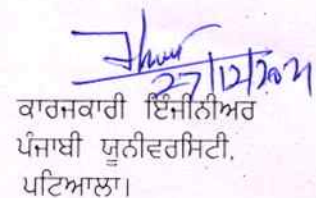 27/12/2021
ਕਾਰਜਕਾਰੀ ਇੰਜੀਨੀਅਰ
ਪੰਜਾਬੀ ਯੂਨੀਵਰਸਿਟੀ.
ਪਟਿਆਲਾ।